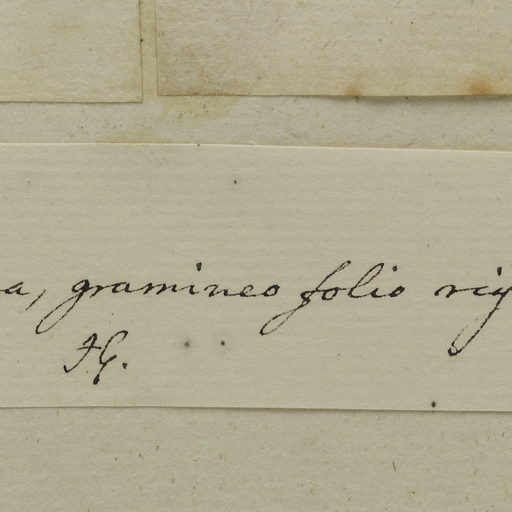 a, gramineo folio rig
J.G.